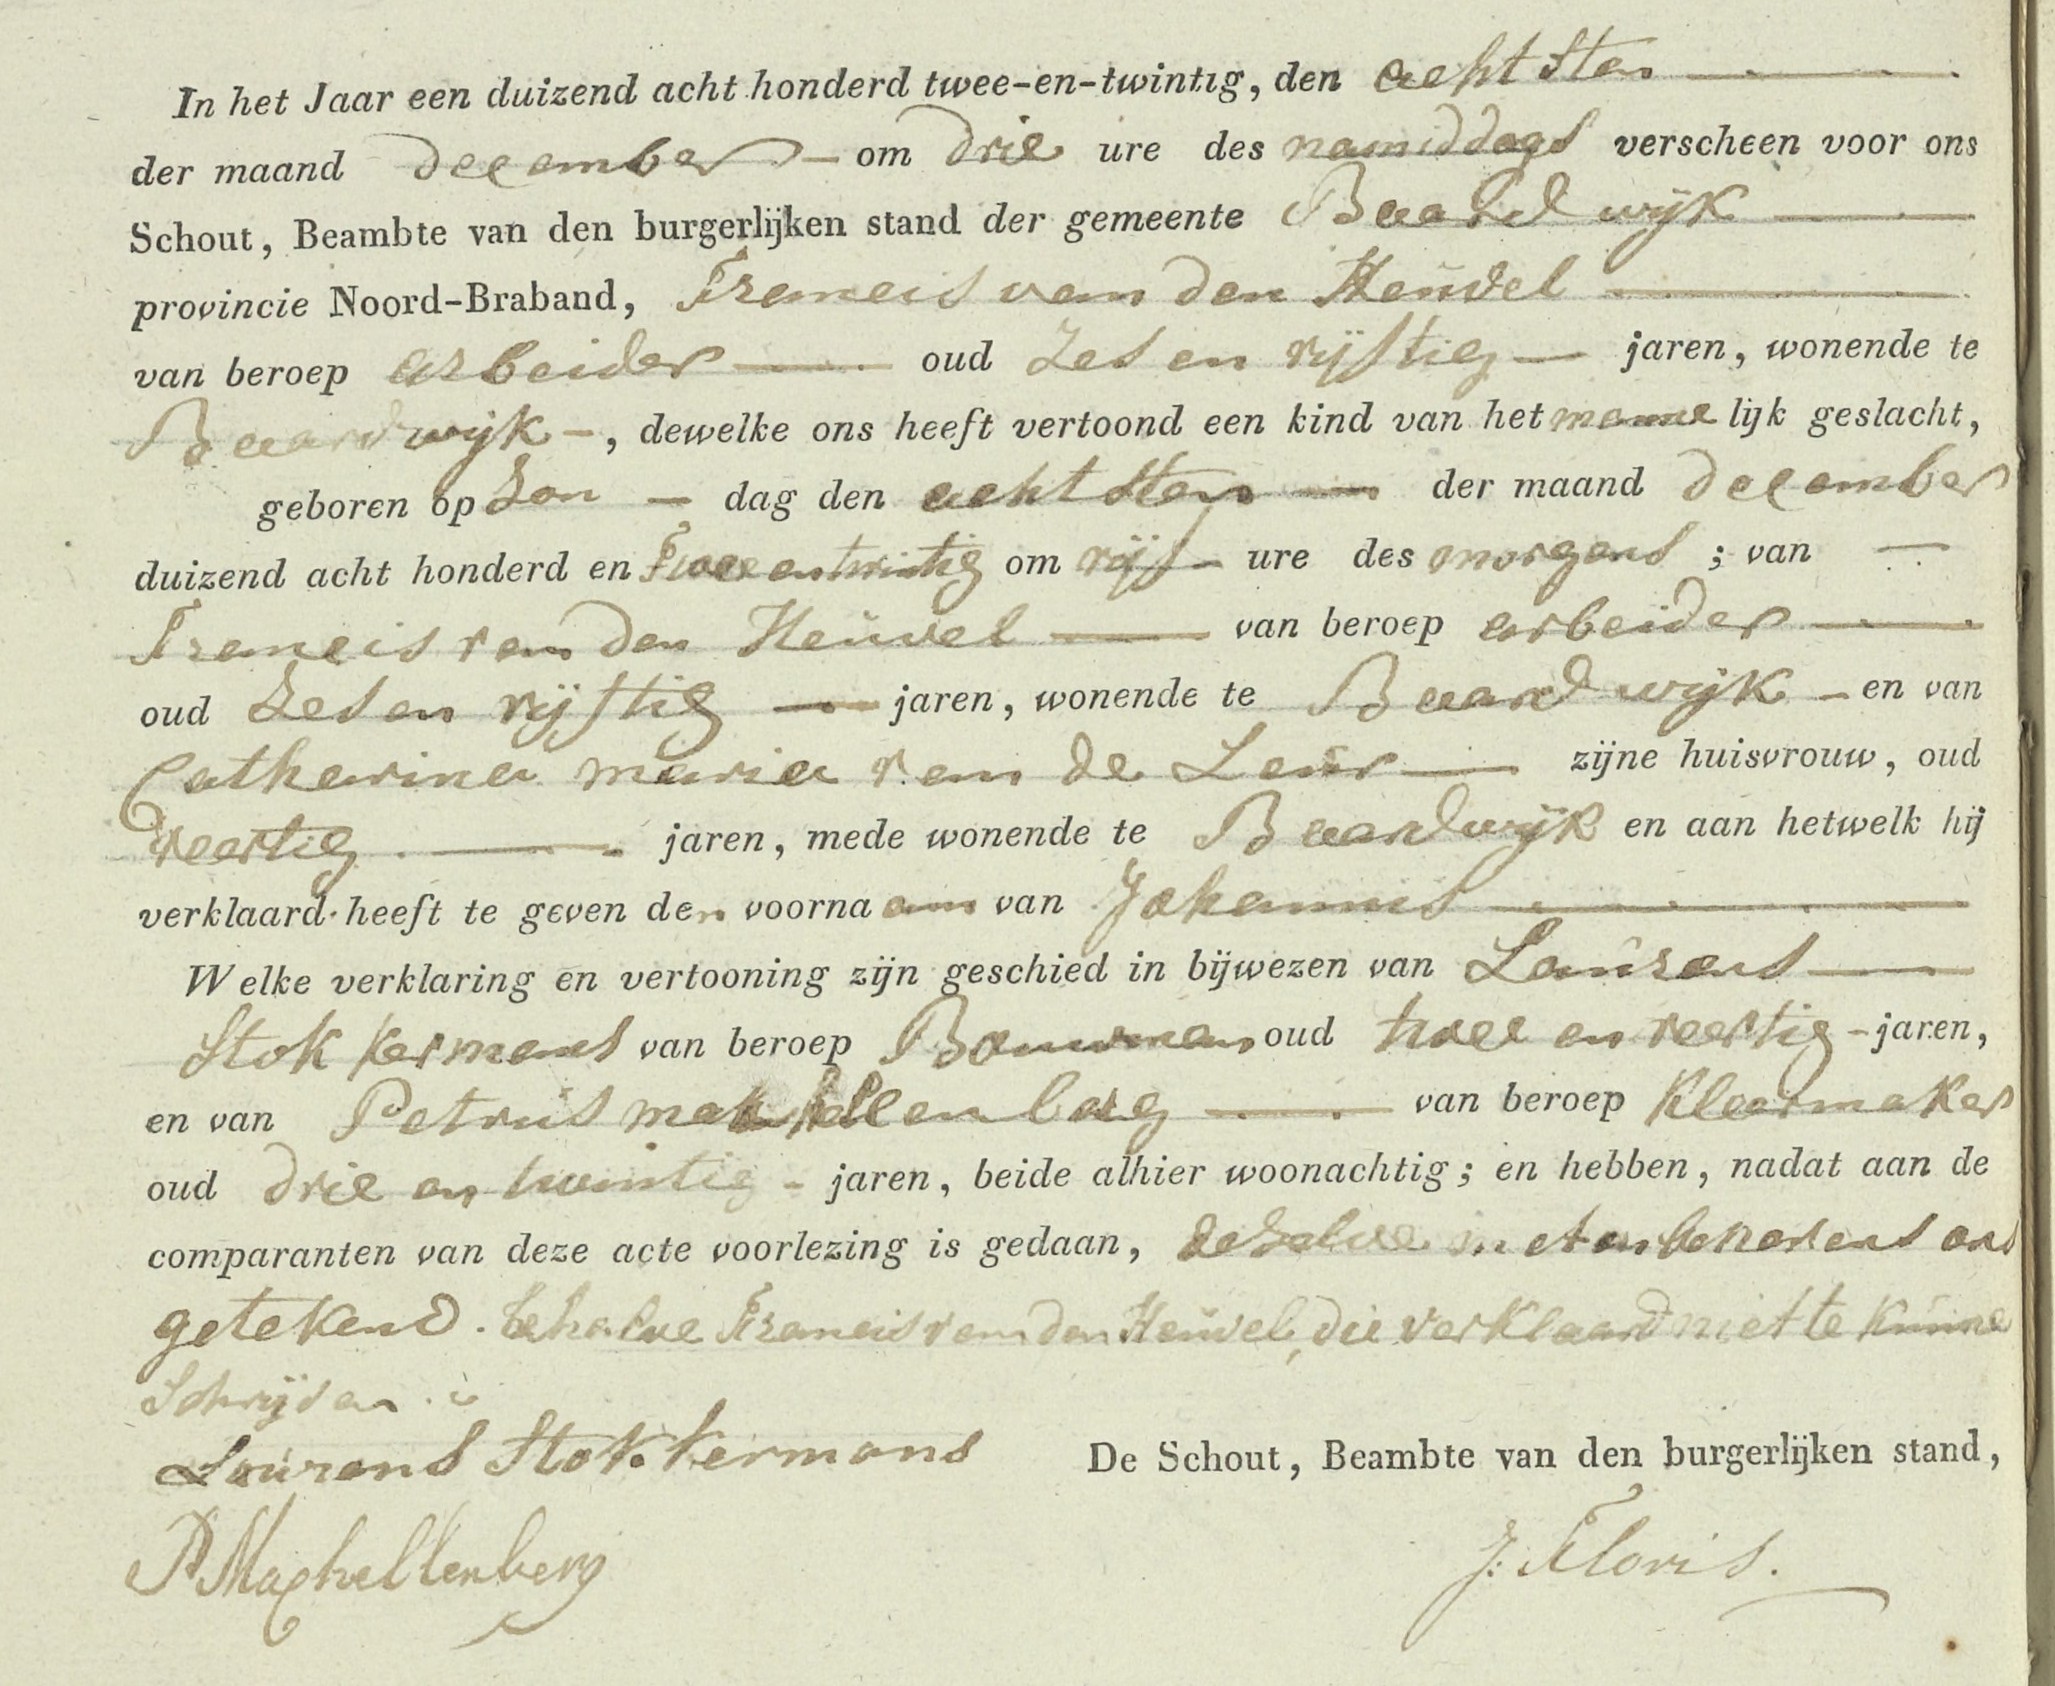 In het Jaar een duizend acht honderd twee-en-twintig, den achtsten
der maand december om drie ure des namiddags verscheen voor ons
Schout, Beambte van den burgerlijken stand der gemeente Baardwijk
provincie Noord-Braband, Francis van den Heuvel
van beroep arbeider oud Zes en vijftig jaren, wonende te
Baardwijk, dewelke ons heeft vertoond een kind van het mannelijk geslacht,
geboren op Zondag den achtsten der maand december
duizend acht honderd en Twee en twintig om vijf ure des morgens; van
Francis van den Heuvel van beroep arbeider
oud Zes en vijftig jaren, wonende te Baardwijk en van
Catharina maria van de Leur zijne huisvrouw, oud
veertig jaren, mede wonende te Baardwijk en aan hetwelk hij
verklaard heeft te geven den voornaam van Johannis
Welke verklaring en vertooning zijn geschied in bijwezen van Laurens
Stokkermans van beroep Bouwman oud twee en veertig jaren,
en van Petrus van beroep Kleermaker
oud drie en twintig jaren, beide alhier woonachtig; en hebben, nadat aan de
comparanten van deze acte voorlezing is gedaan, dezelve met en benevens ons
getekend. behalve Francis van den Heuvel, die verklaard niet te kunne
Schrijven
Laurens Stokkermans De Schout, Beambte van den burgerlijken stand,
P Machellenberg J: Floris.